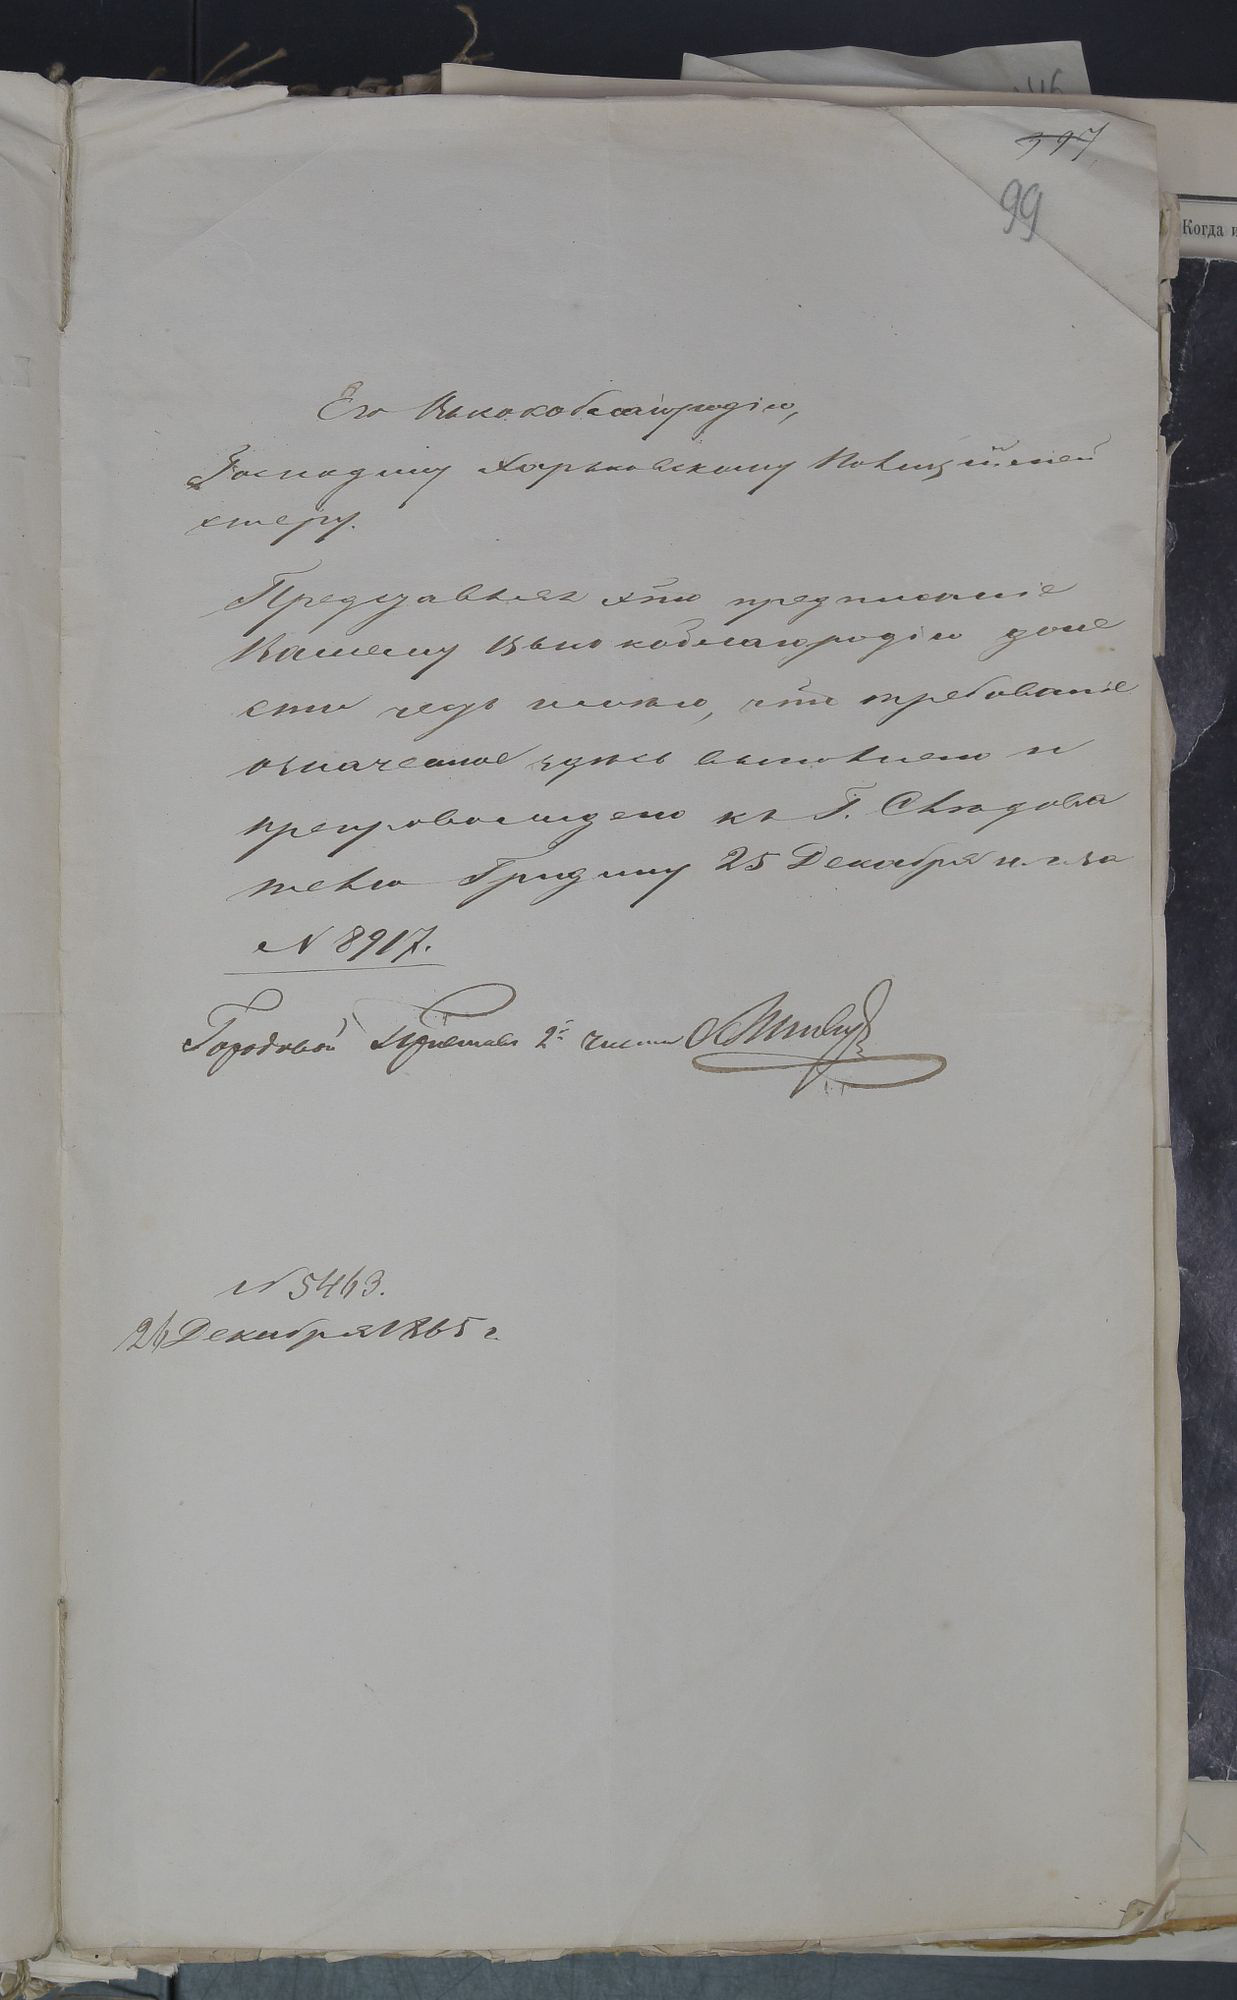 397
99
Когда и
Его Высокоблагородію,
Господину Харьковскому Полиціймей
стеру.
Представляя это предписаніе
Вашему Высокоблагородію доне
сти честь имѣю, что требованіе
означенное здѣсь выполнено и
препровождено къ Г. Слѣдова
телю Гридину 25 Декабря н. г. за
N 8917.
Городовой Приставъ 2й части
N 5463.
26 Декабря 1865 г.